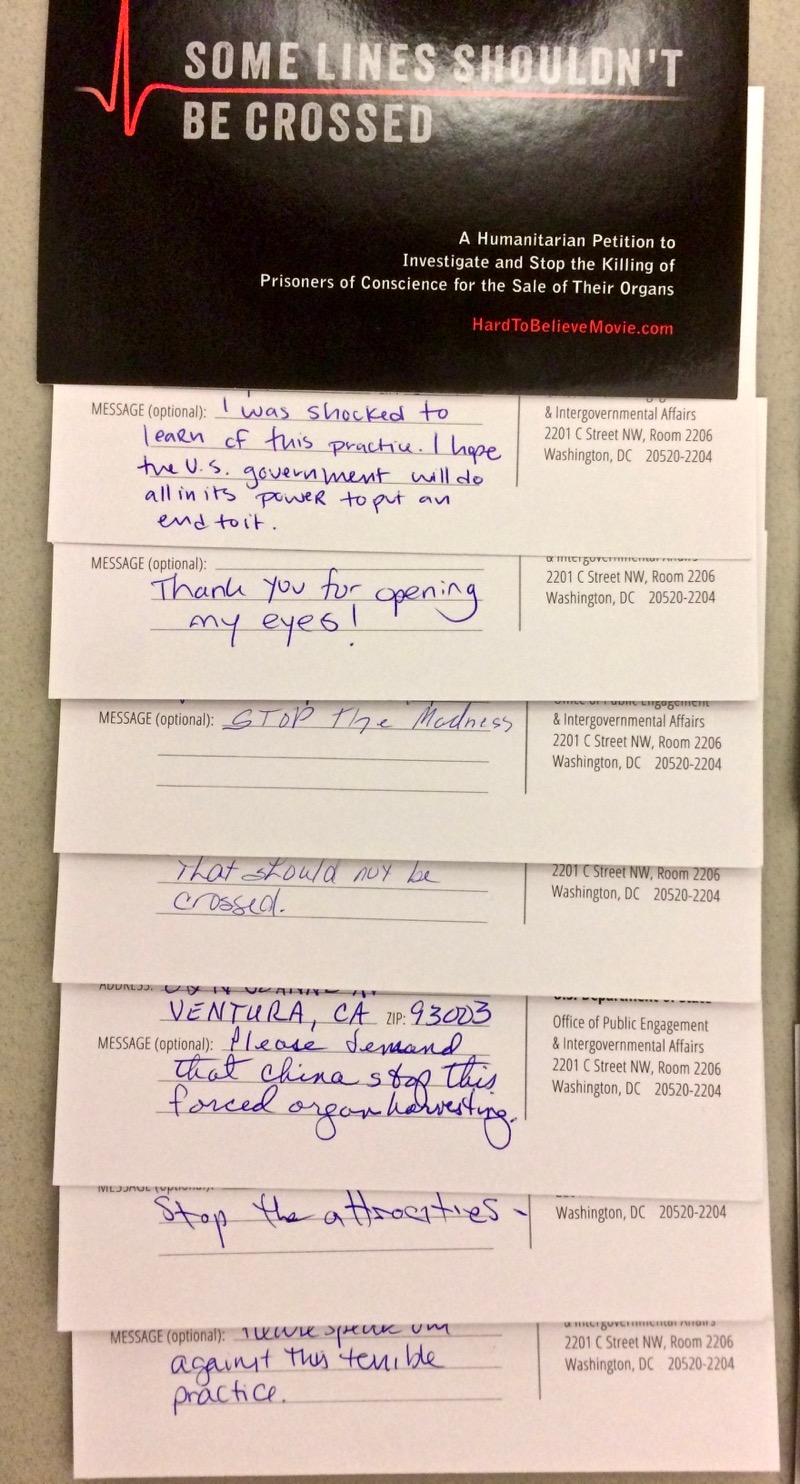 SOME LINES SHOULDN'T
BE CROSSED
A Humanitarian Petition to
Investigate and Stop the Killing of
Prisoners of Conscience for the Sale of Their Organs
HardToBelieveMovie.com
MESSAGE (optional): I was shocked to
learn of this practice. I hope
the U.S. government will do
all in its power to put an
end to it.
& Intergovernmental Affairs
2201 C Street NW, Room 2206
Washington, DC 20520-2204
MESSAGE (optional):
Thank you for opening
my eyes!
& Intergovernmental Affairs
2201 C Street NW, Room 2206
Washington, DC 20520-2204
MESSAGE (optional): STOP the Madness
Office of Public Engagement
& Intergovernmental Affairs
2201 C Street NW, Room 2206
Washington, DC 20520-2204
That should not be
crossed.
2201 C Street NW, Room 2206
Washington, DC 20520-2204
ADDRESS:
VENTURA, CA ZIP: 93003
MESSAGE (optional): Please demand
that china stop this
forced organ harvesting.
U.S. Department of State
Office of Public Engagement
& Intergovernmental Affairs
2201 C Street NW, Room 2206
Washington, DC 20520-2204
MESSAGE (optional):
Stop the attrocities -
Washington, DC 20520-2204
MESSAGE (optional): speak out
against this terrible
practice.
& Intergovernmental Affairs
2201 C Street NW, Room 2206
Washington, DC 20520-2204